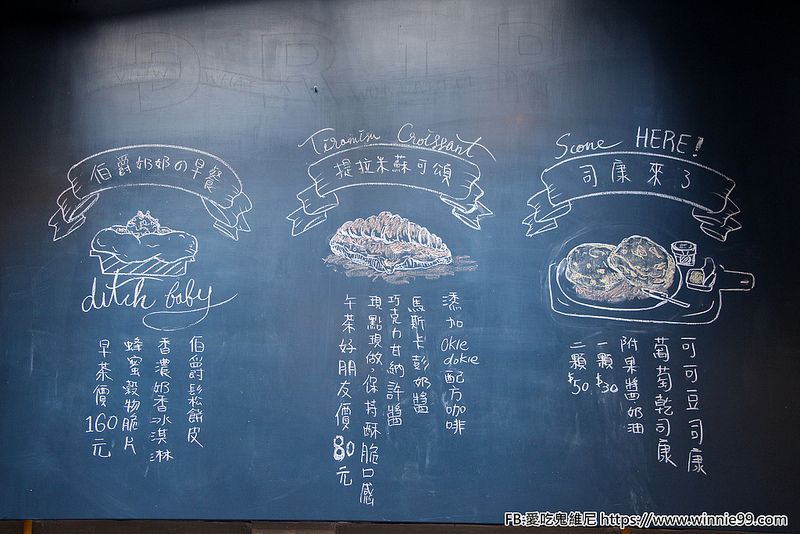 D R I P
伯爵奶奶の早餐
ditch baby
伯爵鬆餅皮
香濃奶香冰淇淋
蜂蜜穀物脆片
早茶價160元
Tiramisu Croissant
提拉米蘇可頌
添加Okle dokie配方咖啡
馬斯卡彭奶醬
巧克力甘納許醬
現點現做,保持酥脆口感
午茶好朋友價80元
Scone HERE!
司康來了
可可豆司康
葡萄乾司康
附果醬奶油
一顆$30
二顆$50
FB:愛吃鬼維尼 https://www.winnie99.com/